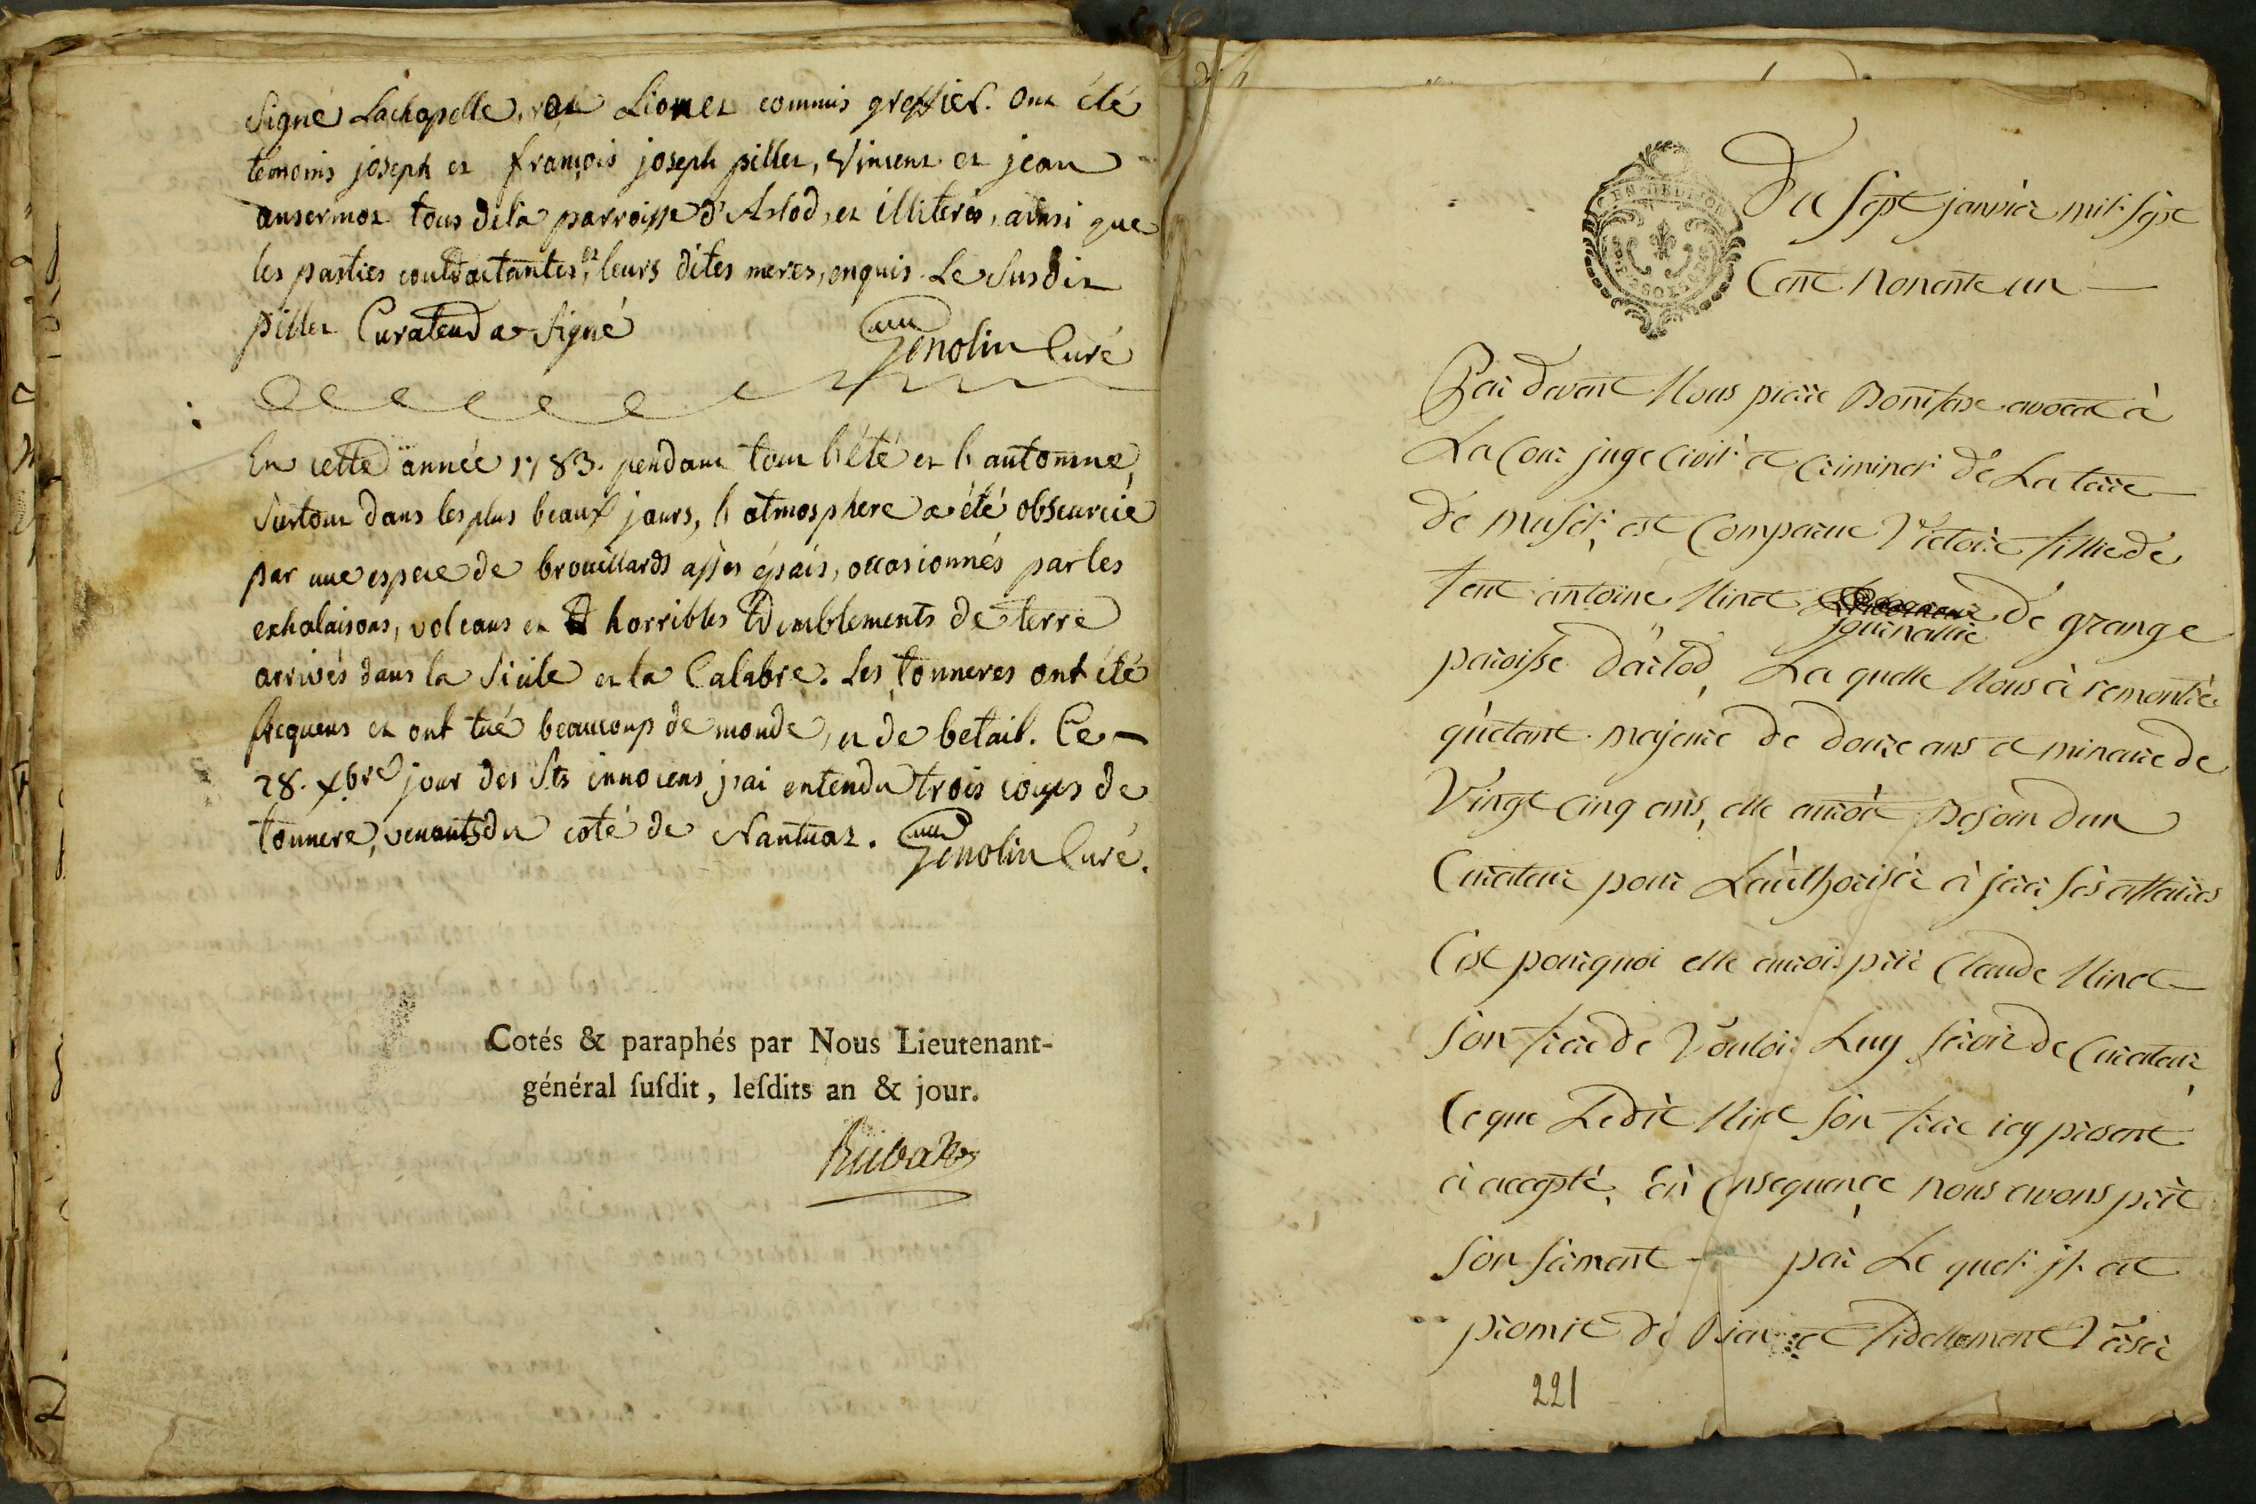 Signé Lachapelle, et Lionet commis greffier. Ont été
temoins joseph et françois joseph pillet, Vincent et jean
ansermoz tous dela parroisse d'Arlod, et illiterés, ainsi que
les parties contractantes, et leurs dites meres, enquis. Le susdit
pillet Curateur a signé
Genolin Curé
En cette année 1783. pendant tout l'été et l'automne,
surtout dans les plus beaux jours, l'atmosphere a été obscurcie
par une espece de brouillards assés épais, occasionnés par les
exhalaisons, volcans et horribles tremblements de terre
arrivés dans la Sicile et la Calabre. Les tonneres ont été
frequens et ont tué beaucoup de monde, et de betail. Ce
28. Xbre jour des Sts innocens j'ai entendu trois coups de
tonnere, venants du coté de Nantuaz.
Genolin Curé.
Cotés & paraphés par Nous Lieutenant-
général ſuſdit, leſdits an & jour.
Du sept janvier mil sept
Cent nonante un
Par devant Nous pierre Boniface avocat à
La Cour juge civil et criminel de La terre
de musel, est Comparue Victoire fillie de
feut antoine Ninet de grange
journallie
paroisse darlod, La quelle Nous à remontré
qu'etant majeure de douze ans et mineure de
Vingt cinq ans, elle auroit Besoin dun
Curateur pour L'authoriser à jerer ses affaires
C'est pourquoi elle auroit prié Claude Ninet
son frere de Vouloir Luy servir de Curateur,
Ce que Ledit Ninet son frere icy présent
à accepté, En Consequence nous avons prit
son serment par Le quel jl at
promit de Bien et fidellement Verser
221